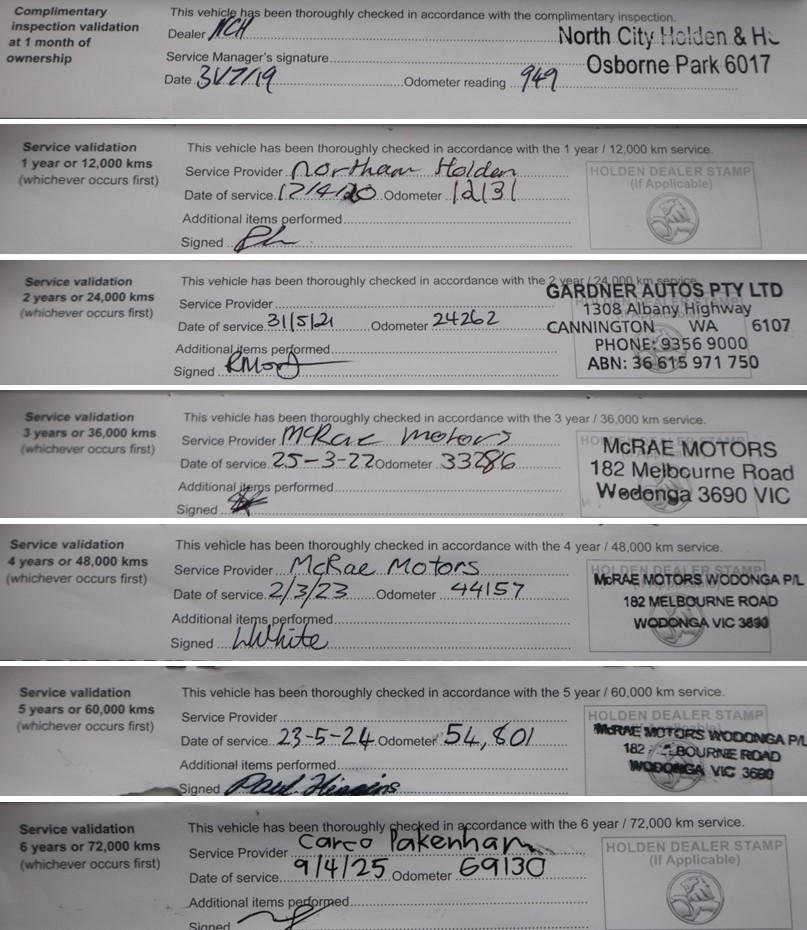 Complimentary
inspection validation
at 1 month of
ownership
This vehicle has been thoroughly checked in accordance with the complimentary inspection.
Dealer NCH
Service Manager's signature
Date 31/7/19 Odometer reading 949
North City Holden &
Osborne Park 6017
Service validation
1 year or 12,000 kms
(whichever occurs first)
This vehicle has been thoroughly checked in accordance with the 1 year / 12,000 km service.
Service Provider Northam Holden
Date of service 17/4/20 Odometer 12131
Additional items performed
Signed
HOLDEN DEALER STAMP
(If Applicable)
Service validation
2 years or 24,000 kms
(whichever occurs first)
This vehicle has been thoroughly checked in accordance with the 2 year / 24,000 km service.
Service Provider
Date of service 31/5/21 Odometer 24262
Additional items performed
Signed
GARDNER AUTOS PTY LTD
1308 Albany Highway
CANNINGTON WA 6107
PHONE: 9356 9000
ABN: 36 615 971 750
Service validation
3 years or 36,000 kms
(whichever occurs first)
This vehicle has been thoroughly checked in accordance with the 3 year / 36,000 km service.
Service Provider McRae Motors
Date of service 25-3-22 Odometer 33286
Additional items performed
Signed
McRAE MOTORS
182 Melbourne Road
Wodonga 3690 VIC
Service validation
4 years or 48,000 kms
(whichever occurs first)
This vehicle has been thoroughly checked in accordance with the 4 year / 48,000 km service.
Service Provider McRae Motors
Date of service 2/3/23 Odometer 44157
Additional items performed
Signed WWhite
HOLDEN DEALER STAMP
McRAE MOTORS WODONGA P/L
182 MELBOURNE ROAD
WODONGA VIC 3690
Service validation
5 years or 60,000 kms
(whichever occurs first)
This vehicle has been thoroughly checked in accordance with the 5 year / 60,000 km service.
Service Provider
Date of service 23-5-24 Odometer 54,801
Additional items performed
Signed Paul Higgins
HOLDEN DEALER STAMP
McRAE MOTORS WODONGA P/L
182 BOURNE ROAD
WODONGA VIC 3690
Service validation
6 years or 72,000 kms
(whichever occurs first)
This vehicle has been thoroughly checked in accordance with the 6 year / 72,000 km service.
Service Provider Carco Pakenham
Date of service 9/4/25 Odometer 69130
Additional items performed
Signed
HOLDEN DEALER STAMP
(If Applicable)